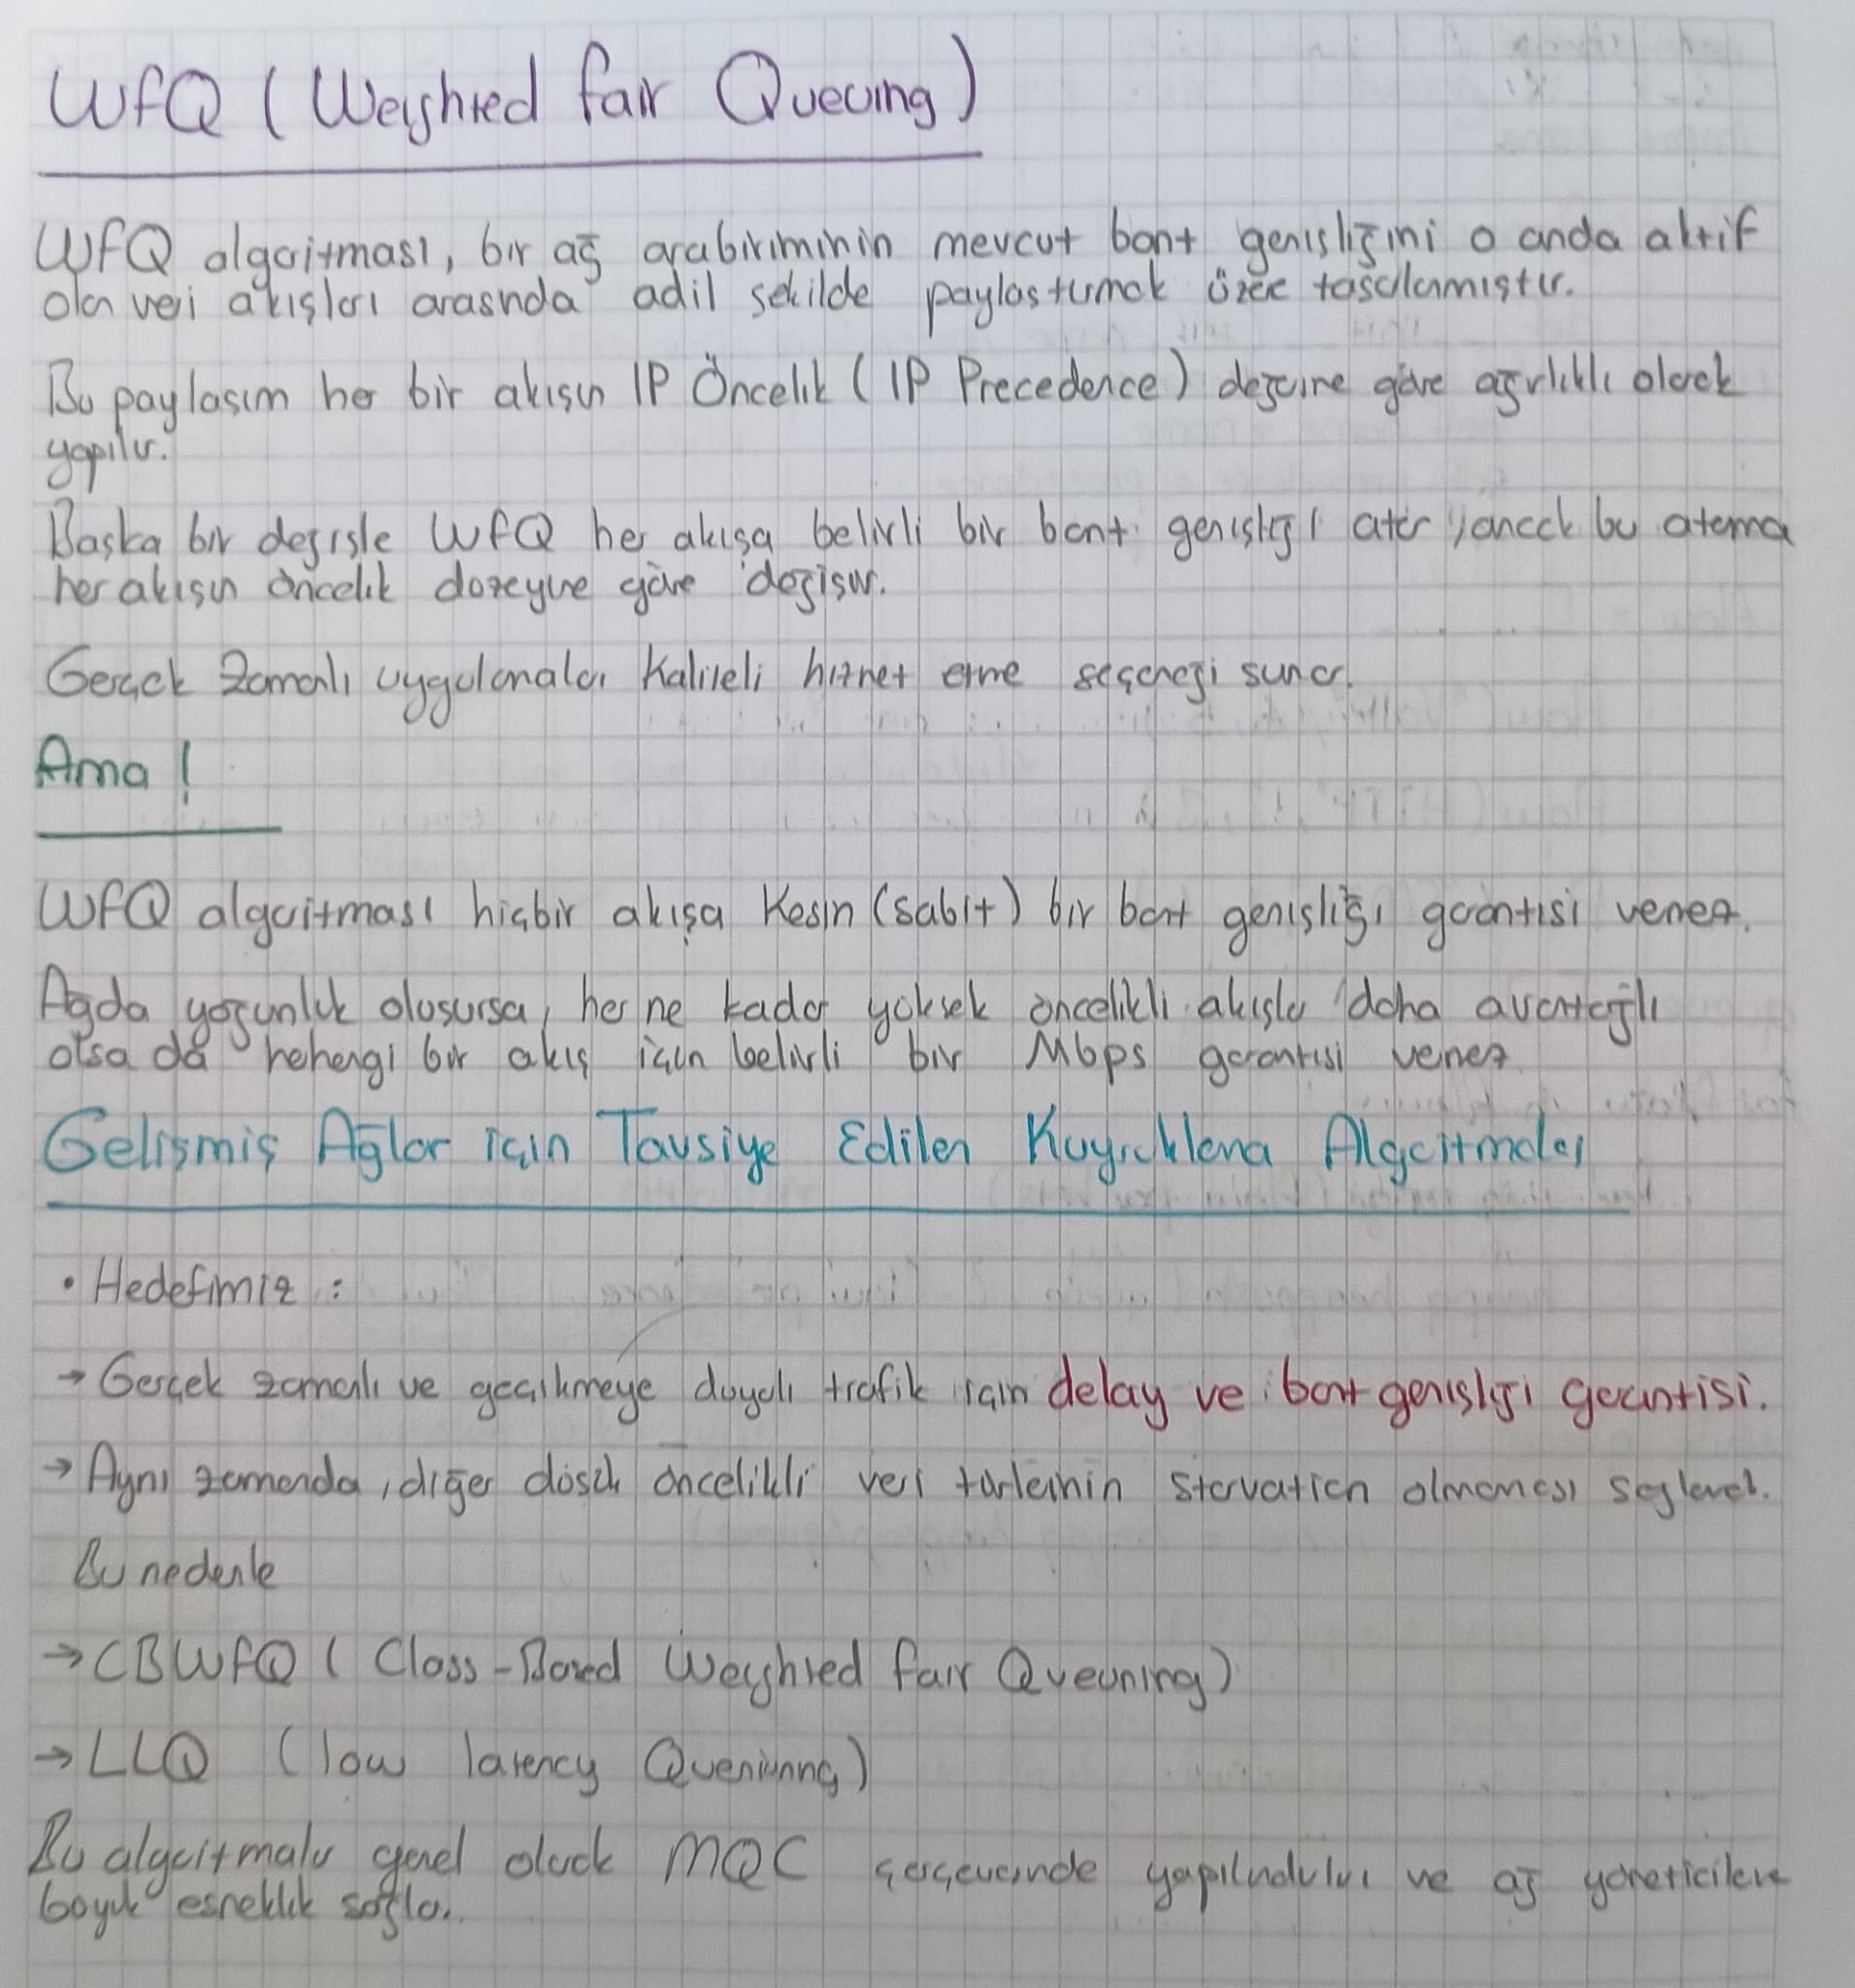 WFQ (Weighted Fair Queuing)
WFQ algoritması, bir ağ arabiriminin mevcut bant genişliğini o anda aktif
olan veri akışları arasında adil şekilde paylaştırmak üzere tasarlanmıştır.
Bu paylaşım her bir akışın IP Öncelik (IP Precedence) değerine göre ağırlıklı olarak
yapılır.
Başka bir değişle WFQ her akışa belirli bir bant genişliği atar, ancak bu atama
her akışın öncelik düzeyine göre değişir.
Gerçek zamanlı uygulamaları kaliteli hizmet etme seçeneği sunar.
Ama !
WFQ algoritması hiçbir akışa kesin (sabit) bir bant genişliği garantisi vermez.
Ağda yoğunluk oluşursa, her ne kadar yüksek öncelikli akışlar daha avantajlı
olsa da herhangi bir akış için belirli bir Mbps garantisi vermez
Gelişmiş Ağlar için Tavsiye Edilen Kuyruklama Algoritmaları
• Hedefimiz :
→ Gerçek zamanlı ve gecikmeye duyarlı trafik için delay ve bant genişliği garantisi.
→ Aynı zamanda, diğer düşük öncelikli veri türlerinin starvation olmaması sağlamak.
Bu nedenle
→ CBWFQ ( Class-Based Weighted Fair Queuning)
→ LLQ (low latency Queniunng)
Bu algoritmalar genel olarak MQC çerçevesinde yapılandırılır ve ağ yöneticilere
büyük esneklik sağlar.